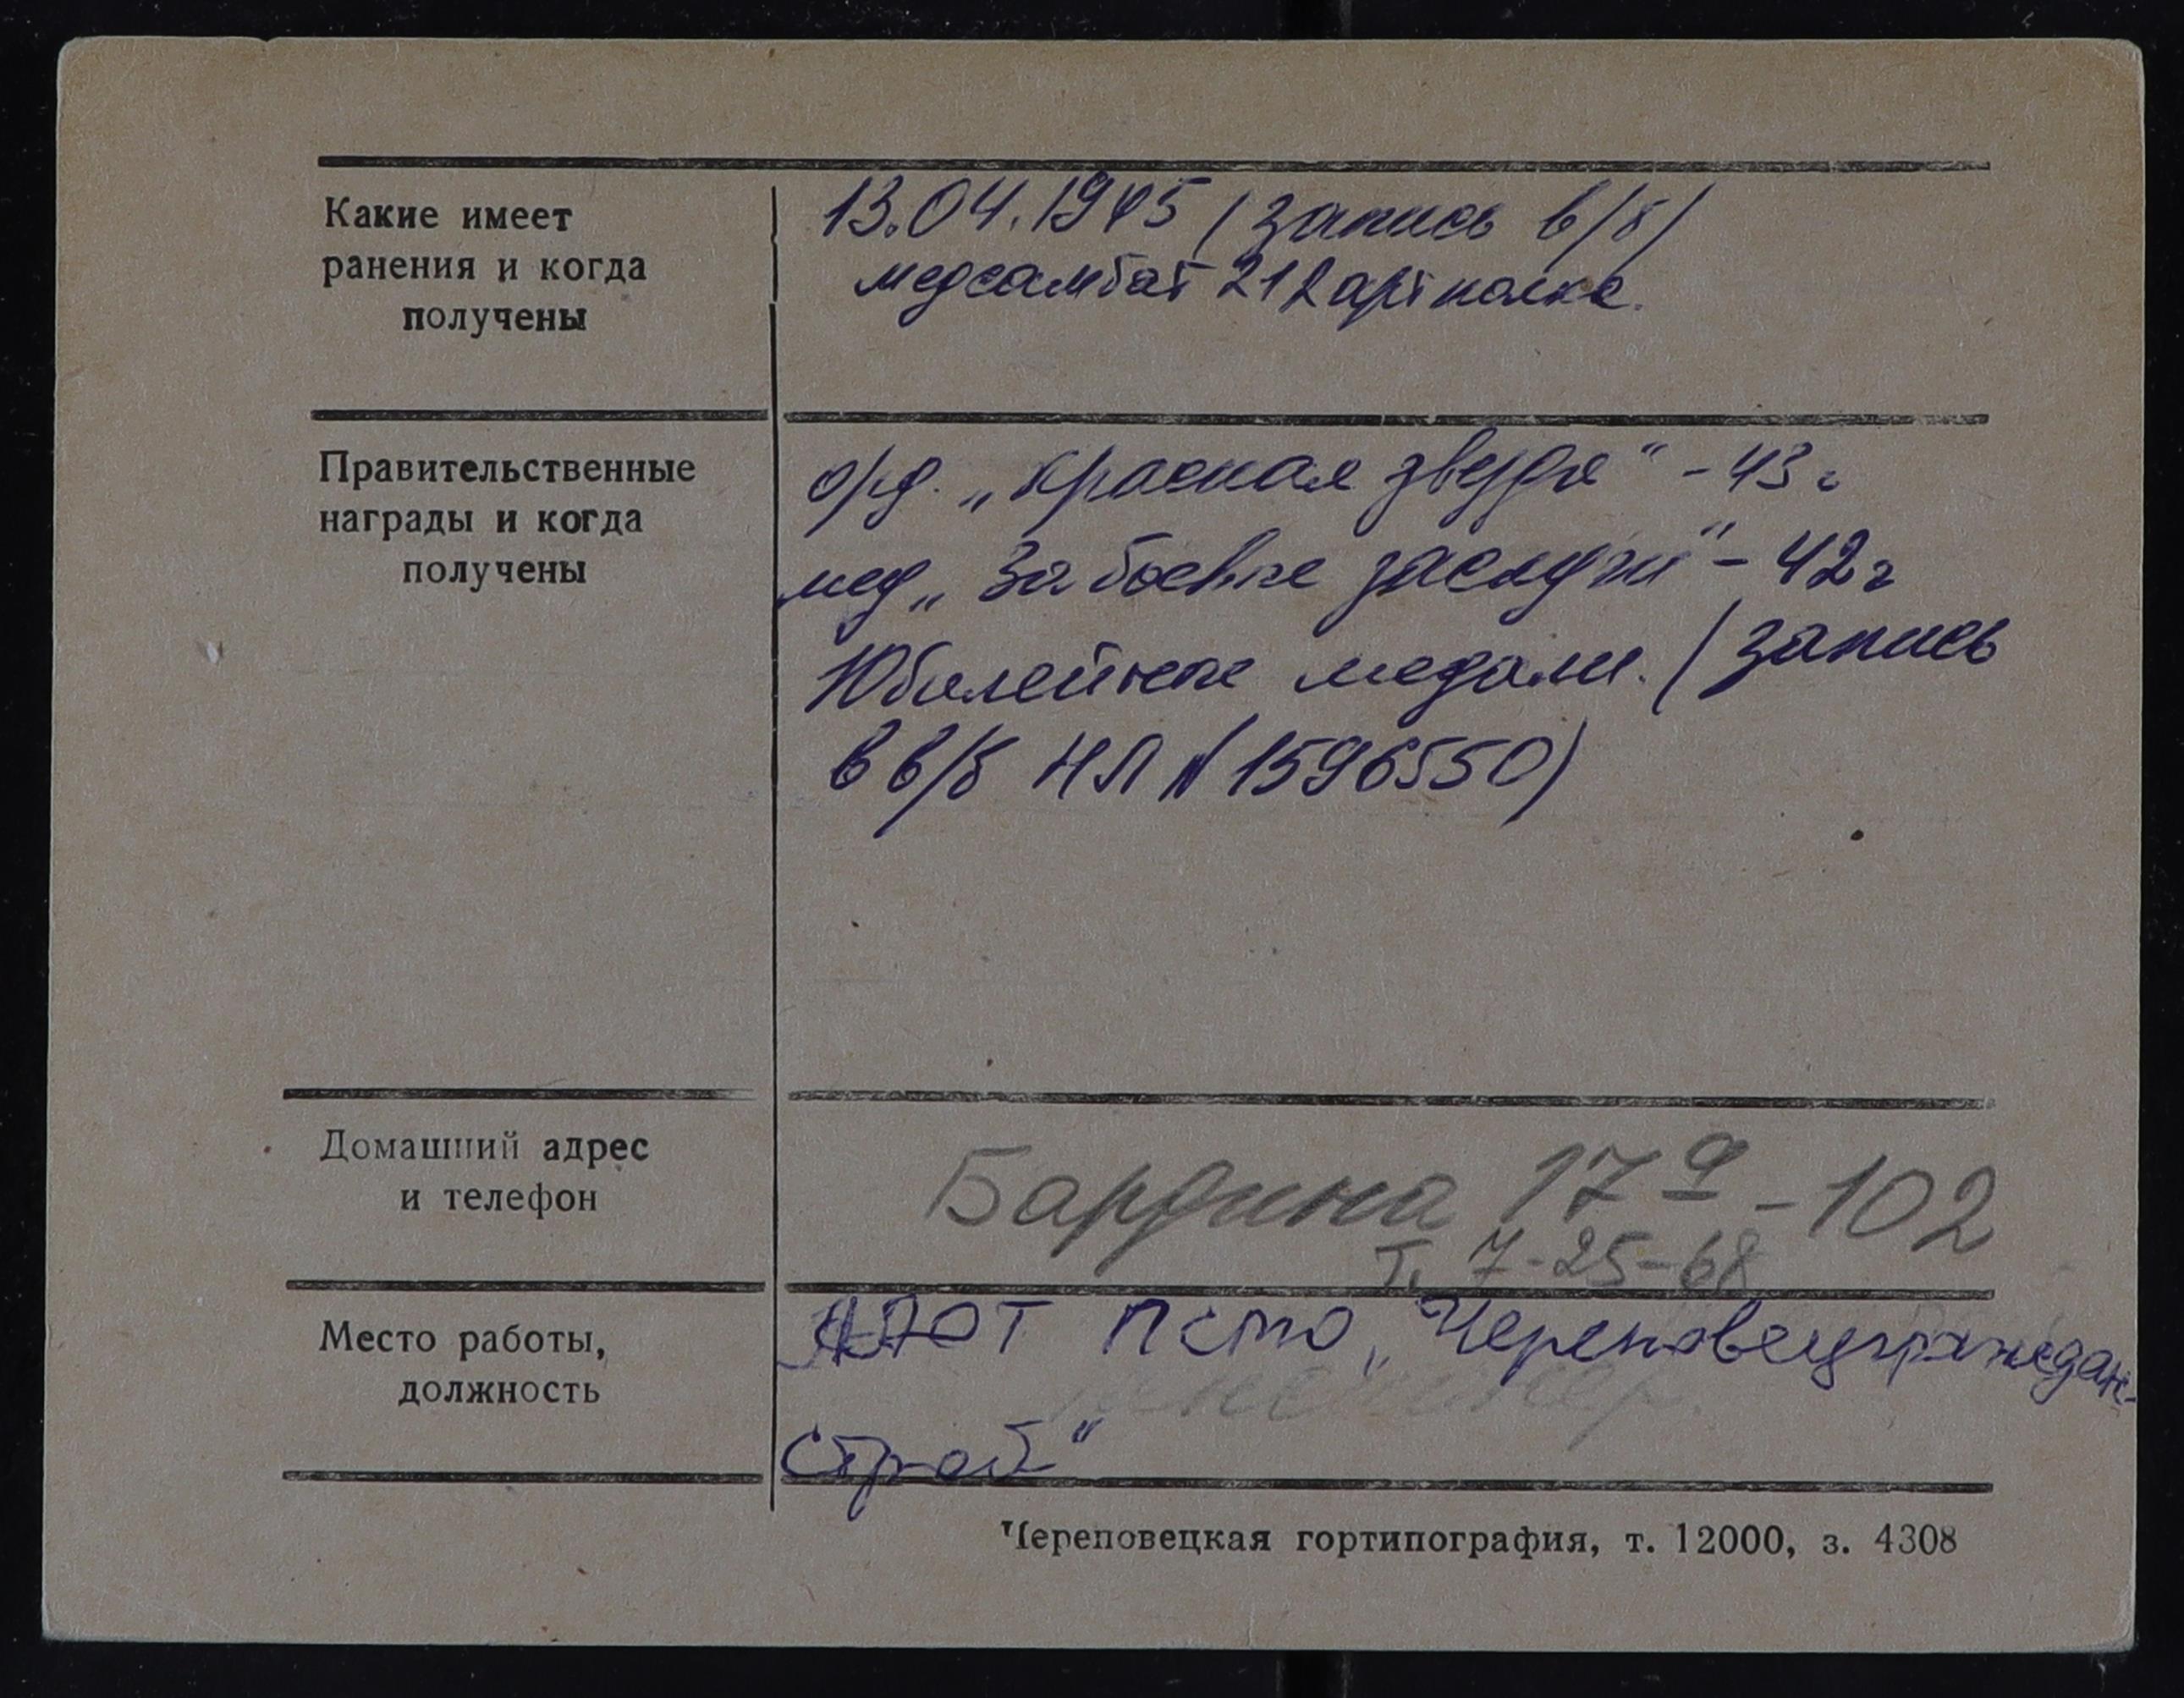 Какие имеет
ранения и когда
получены
13.04.1945 (запись в/б)
медсамбат 212 артполка.
Правительственные
награды и когда
получены
орд. „Красная звезда" - 43 г
мед „За боевые заслуги" - 42 г
Юбилейные медали. (запись
в в/б НЛ № 1596550)
Домашний адрес
и телефон
Бардина 17а - 102
т. 7-25-68
Место работы,
должность
ПСМО „Череповецграждан-
строй"
Череповецкая гортипография, т. 12000, з. 4308